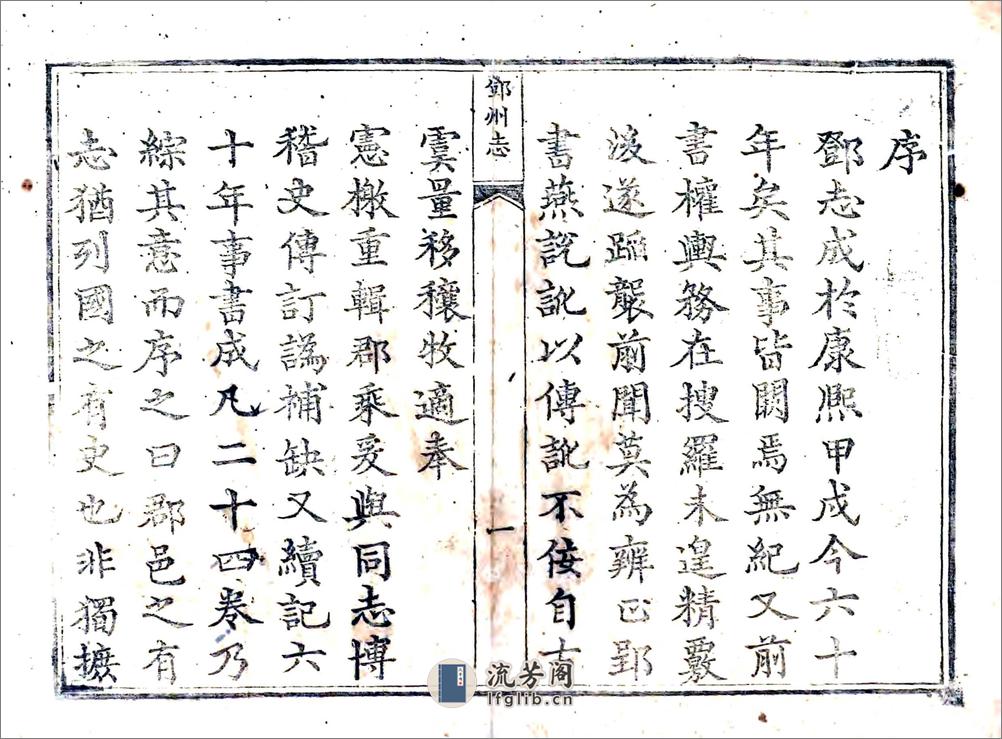 序
鄧志成於康熙甲戌今六十
年矣其事皆闕焉無紀又前
書權輿務在搜羅未遑精覈
後遂蹈襲前聞莫為辨正郢
書燕說訛以傳訛不佞自古
鄧州志
一
虞量移穰牧適奉
憲檄重輯郡乘爰與同志博
稽史傳訂譌補缺又續記六
十年事書成凡二十四卷乃
綜其意而序之曰郡邑之有
志猶列國之有史也非獨摭
流芳阁
lfglib.cn